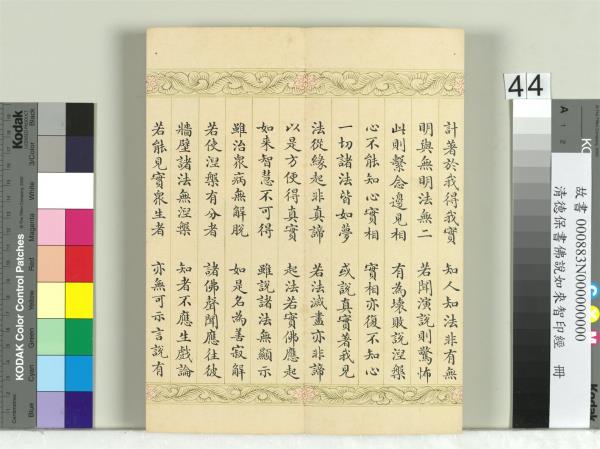 計著於我得我實 知人知法非有無
明與無明法無二 若聞演說則驚怖
此則繫念邊見相 有為壞敗說涅槃
心不能知心實相 實相亦復不知心
一切諸法皆如夢 或說真實著我見
法從緣起非真諦 若法滅盡亦非諦
以是方便得真實 起法若實佛應起
如来智慧不可得 雖說諸法無顯示
雖治衆病無解脫 如是名為善寂解
若使涅槃有分者 諸佛聲聞應往彼
牆壁諸法無涅槃 知者不應生戲論
若能見實衆生者 亦無可示言說有
44
故書 000883N000000000
清德保書佛說如來智印經 冊
Kodak
KODAK Color Control Patches
Blue
Cyan
Green
Yellow
Red
Magenta
White
3/Color
Black
A 1 2
C
M